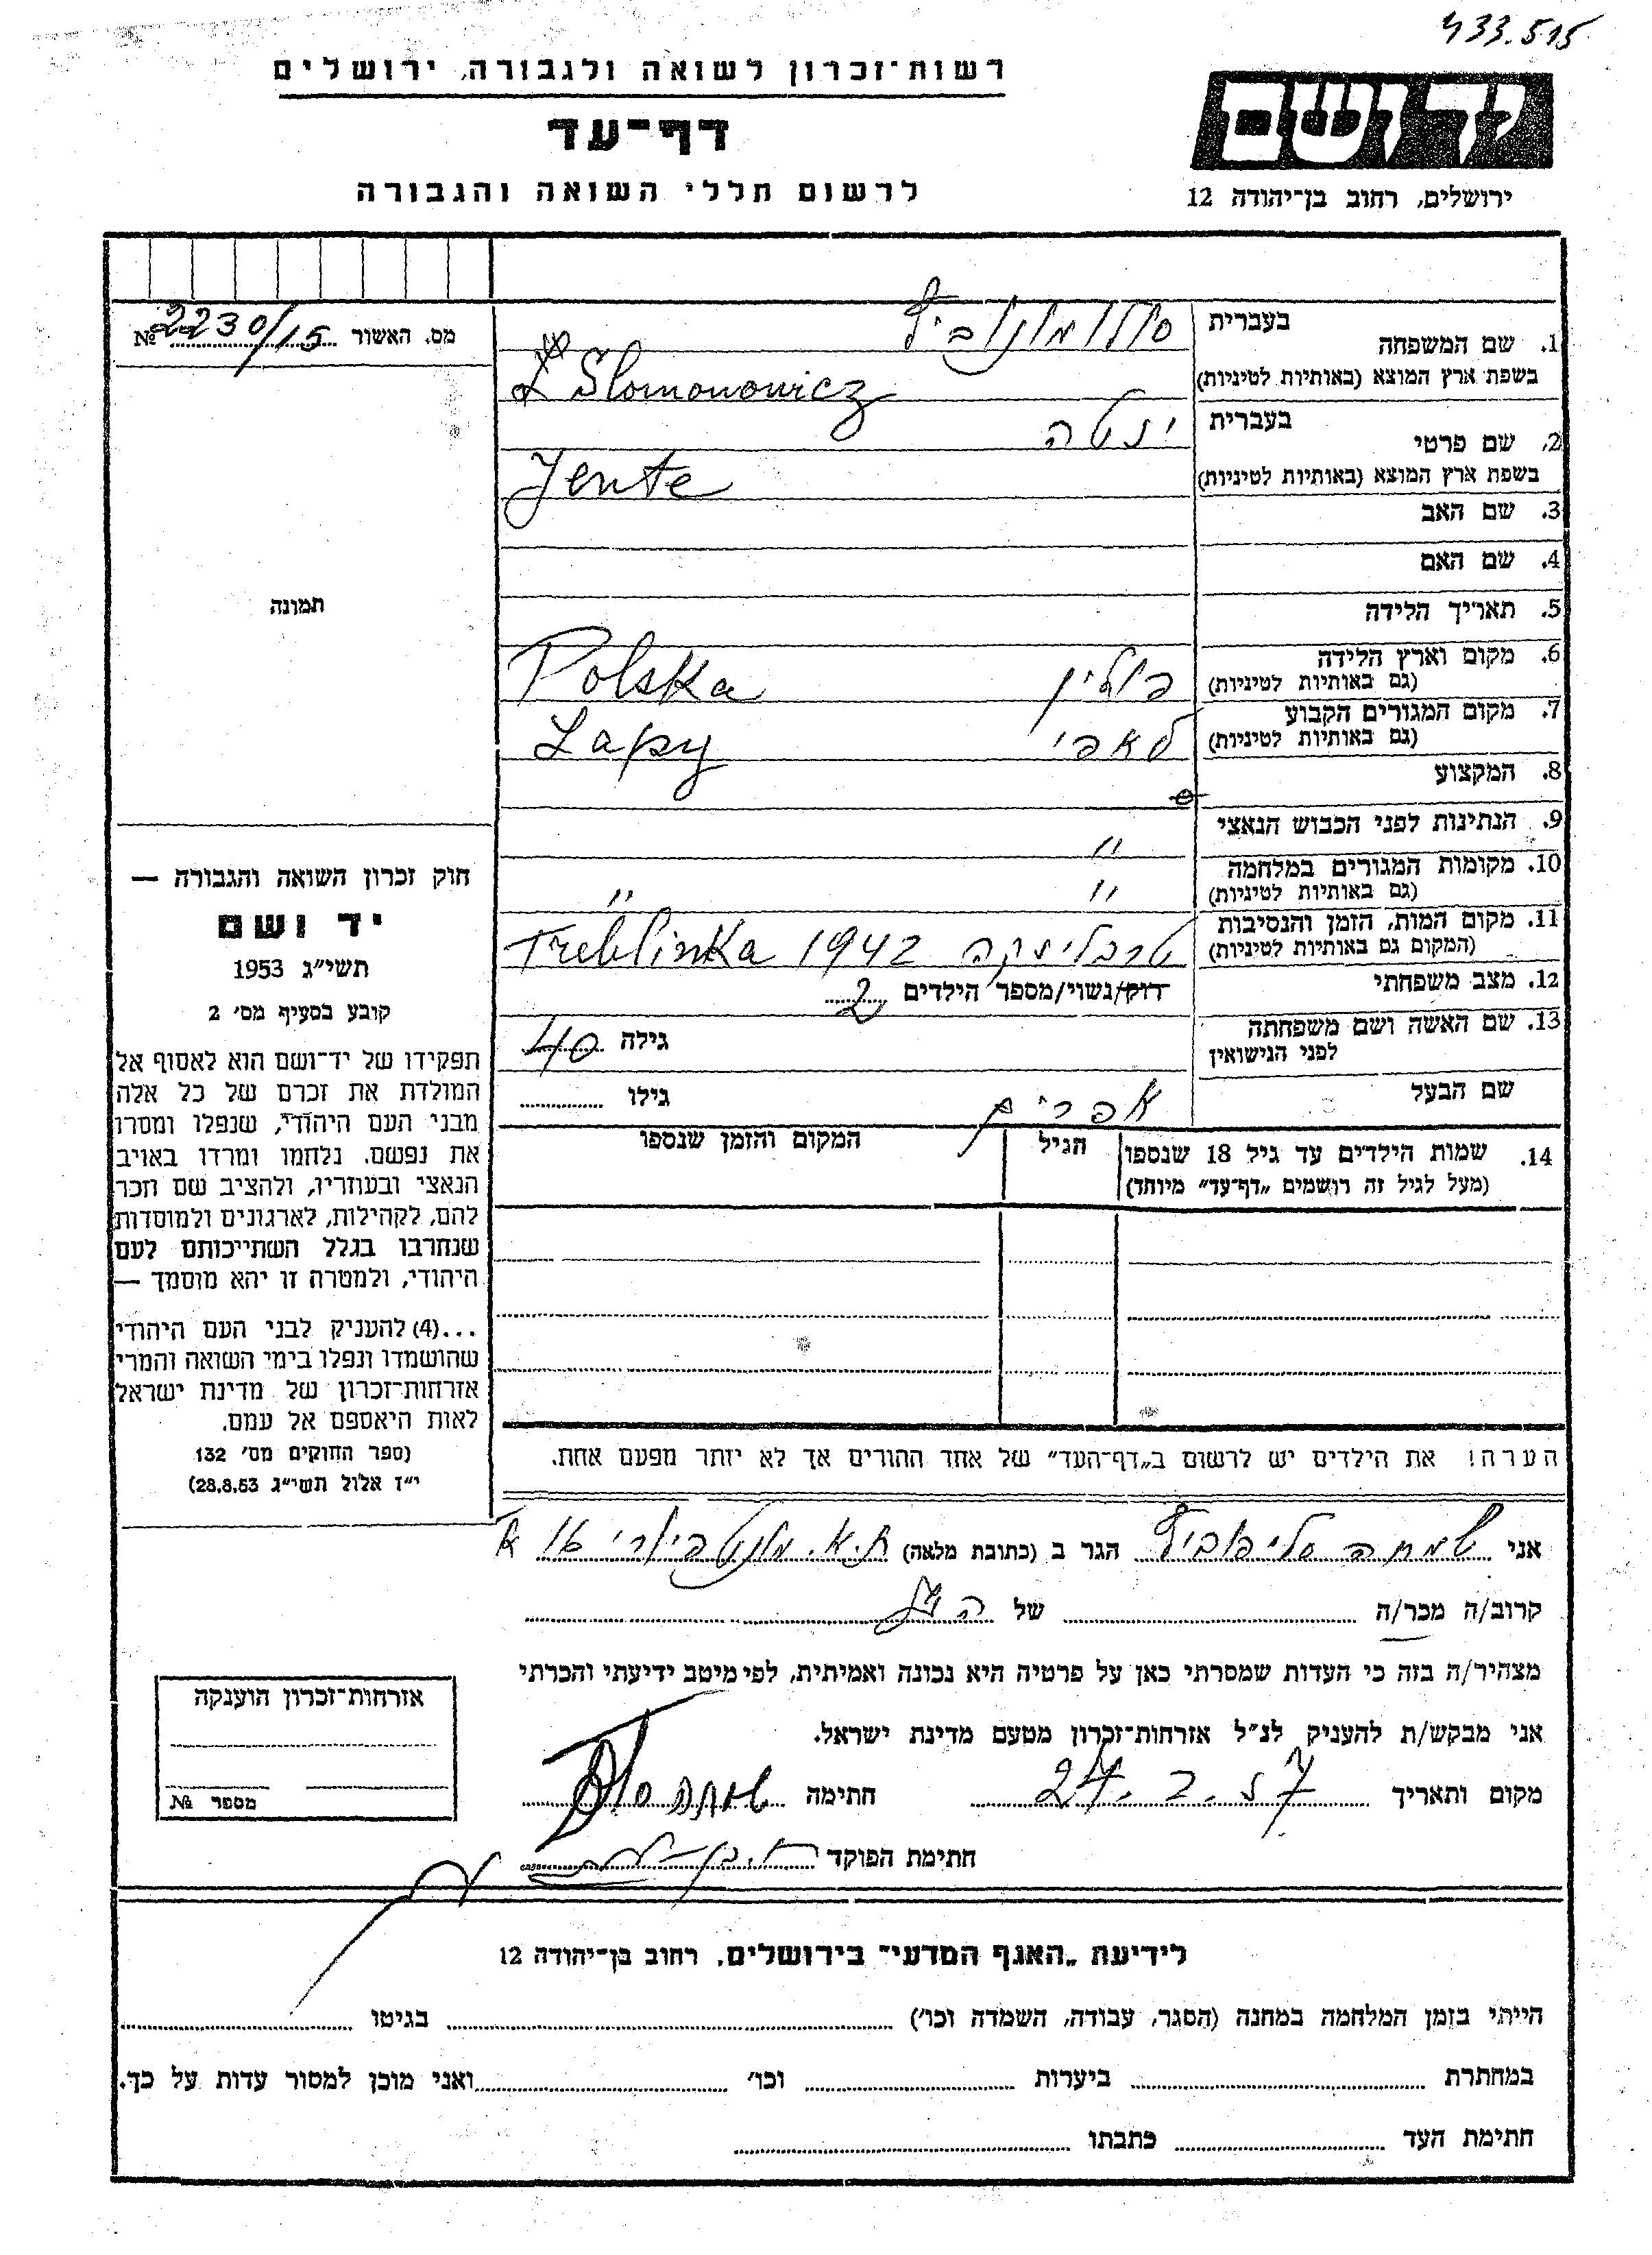 433.515
רשות־זכרון לשואה ולגבורה, ירושלים
יד ושם
דף־עד
ירושלים, רחוב בן־יהודה 12
לרשום חללי השואה והגבורה
מס. האשור 2230/15 №
1. שם המשפחה
בעברית סלומונוביץ
בשפת ארץ המוצא (באותיות לטיניות) Slomonowicz
2. שם פרטי
בעברית ינטה
בשפת ארץ המוצא (באותיות לטיניות) Jente
3. שם האב
4. שם האם
5. תאריך הלידה
תמונה
6. מקום וארץ הלידה פולין Polska
(גם באותיות לטיניות)
7. מקום המגורים הקבוע לאפי Łapy
(גם באותיות לטיניות)
8. המקצוע
9. הנתינות לפני הכבוש הנאצי "
10. מקומות המגורים במלחמה " "
(גם באותיות לטיניות)
11. מקום המות, הזמן והנסיבות טרבלינקה 1942 Treblinka
(המקום גם באותיות לטיניות)
12. מצב משפחתי רוק/נשוי/מספר הילדים 2
13. שם האשה ושם משפחתה
לפני הנישואין
גילה 40
שם הבעל אפרים גילו
14. שמות הילדים עד גיל 18 שנספו הגיל המקום והזמן שנספו
(מעל לגיל זה רושמים „דף־עד" מיוחד)
חוק זכרון השואה והגבורה —
יד ושם
תשי"ג 1953
קובע בסעיף מס' 2
תפקידו של יד־ושם הוא לאסוף אל
המולדת את זכרם של כל אלה
מבני העם היהודי, שנפלו ומסרו
את נפשם, נלחמו ומרדו באויב
הנאצי ובעוזריו, ולהציב שם וזכר
להם, לקהילות, לארגונים ולמוסדות
שנחרבו בגלל השתייכותם לעם
היהודי, ולמטרה זו יהא מוסמך —
...(4) להעניק לבני העם היהודי
שהושמדו ונפלו בימי השואה והמרי
אזרחות־זכרון של מדינת ישראל
לאות היאספם אל עמם.
(ספר החוקים מס' 132
י"ז אלול תשי"ג 28.8.53)
הערה! את הילדים יש לרשום ב„דף־העד" של אחד ההורים אך לא יותר מפעם אחת.
אני שמחה סליפוביץ הגר ב (כתובת מלאה) ת.א. מונטיפיורי 16 א
קרוב/ה מכר/ה של הנ"ל
מצהיר/ה בזה כי העדות שמסרתי כאן על פרטיה היא נכונה ואמיתית, לפי מיטב ידיעתי והכרתי
אני מבקש/ת להעניק לנ"ל אזרחות־זכרון מטעם מדינת ישראל.
מקום ותאריך 24.2.57 חתימה שמחה
חתימת הפוקד
אזרחות־זכרון הוענקה
מספר №
לידיעת „האגף המדעי" בירושלים, רחוב בן־יהודה 12
הייתי בזמן המלחמה במחנה (הסגר, עבודה, השמדה וכו') בגיטו
במחתרת ביערות וכו' ואני מוכן למסור עדות על כך.
חתימת העד כתבתו